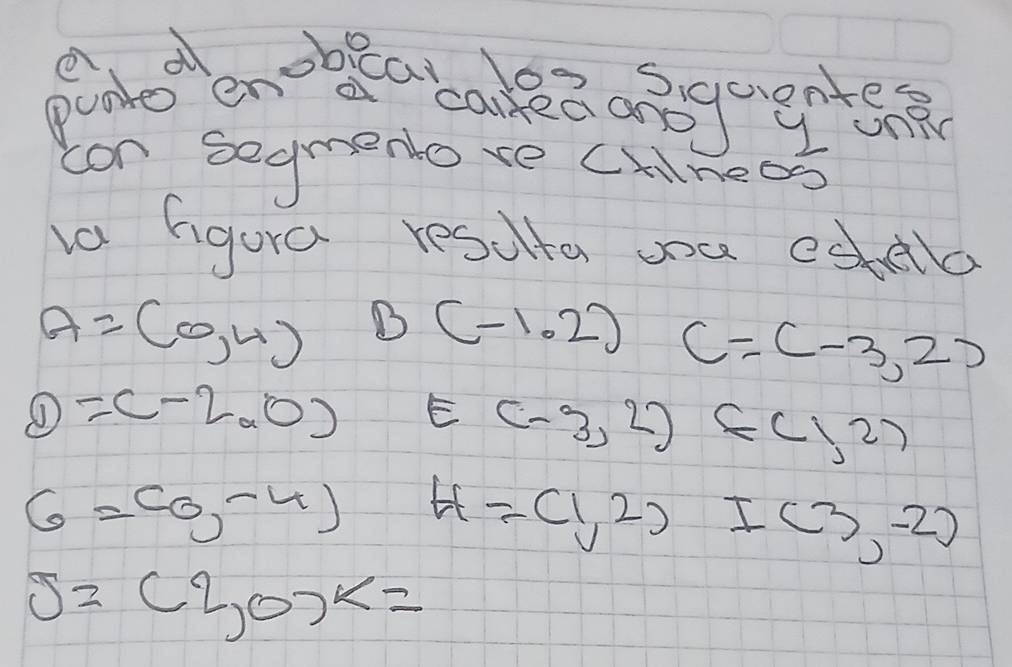 e. al obicar los siguientes
punto en el carteciano y unir
con segmento re ctilneos
la figura resulta una estrella
A=(0,4) B (-1.2) C=(-3,2)
D=(-2.0) E (-3,2) F(1,2)
G=(0,-4) H=(1,2) I(3,-2)
J=(2,0) K=